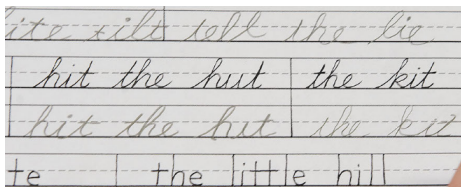 tilt tell the lie
hit the hut the kit
hit the hut the kit
te the little hill